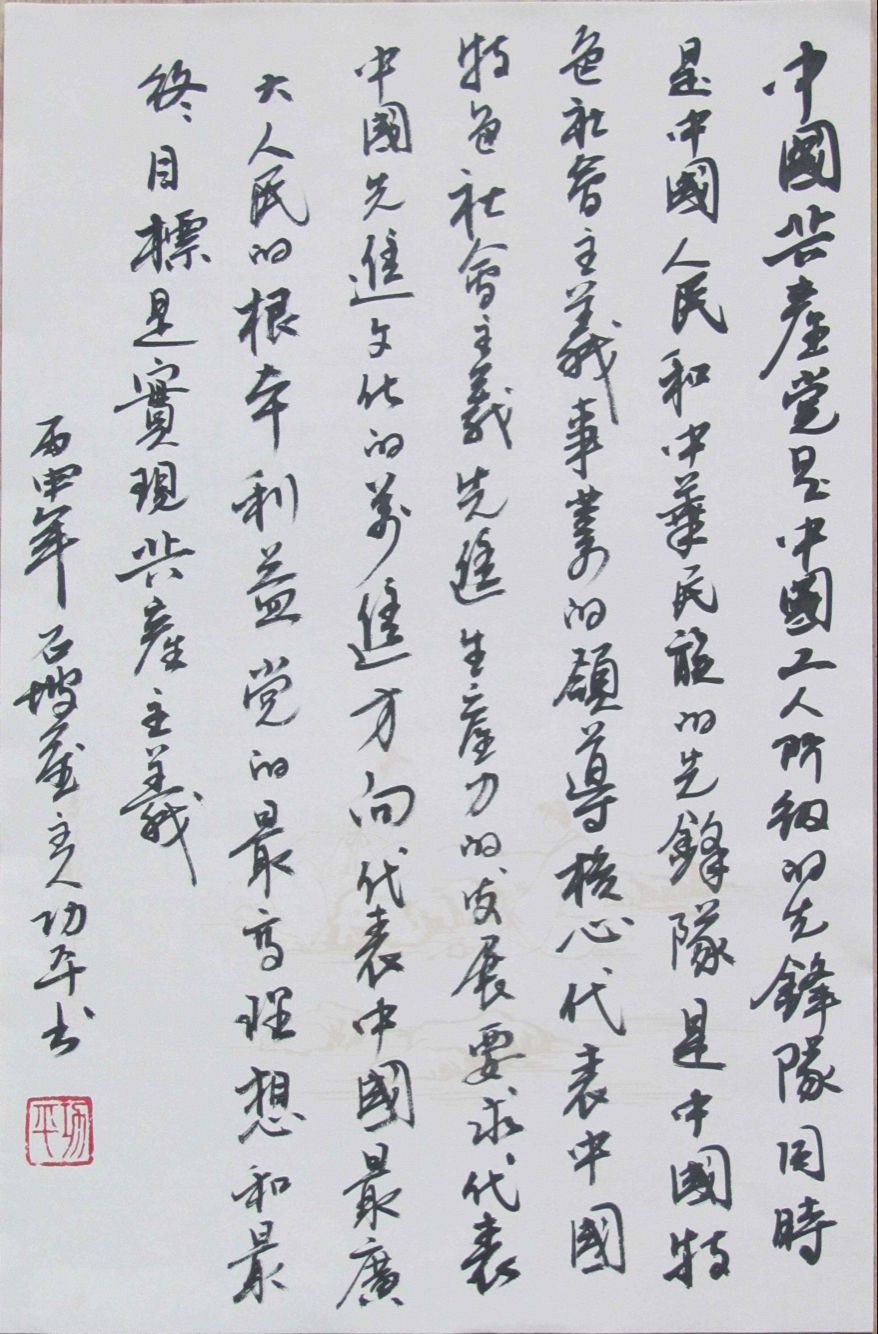 中國共產党是中國工人阶级的先鋒隊同時
是中國人民和中華民族的先鋒隊是中國特
色社會主義事業的領導核心代表中國
特色社會主義先進生産力的发展要求代表
中國先進文化的前進方向代表中國最廣
大人民的根本利益党的最高理想和最
終目標是實現共產主義
丙申年石坡屋主人功平书
功平